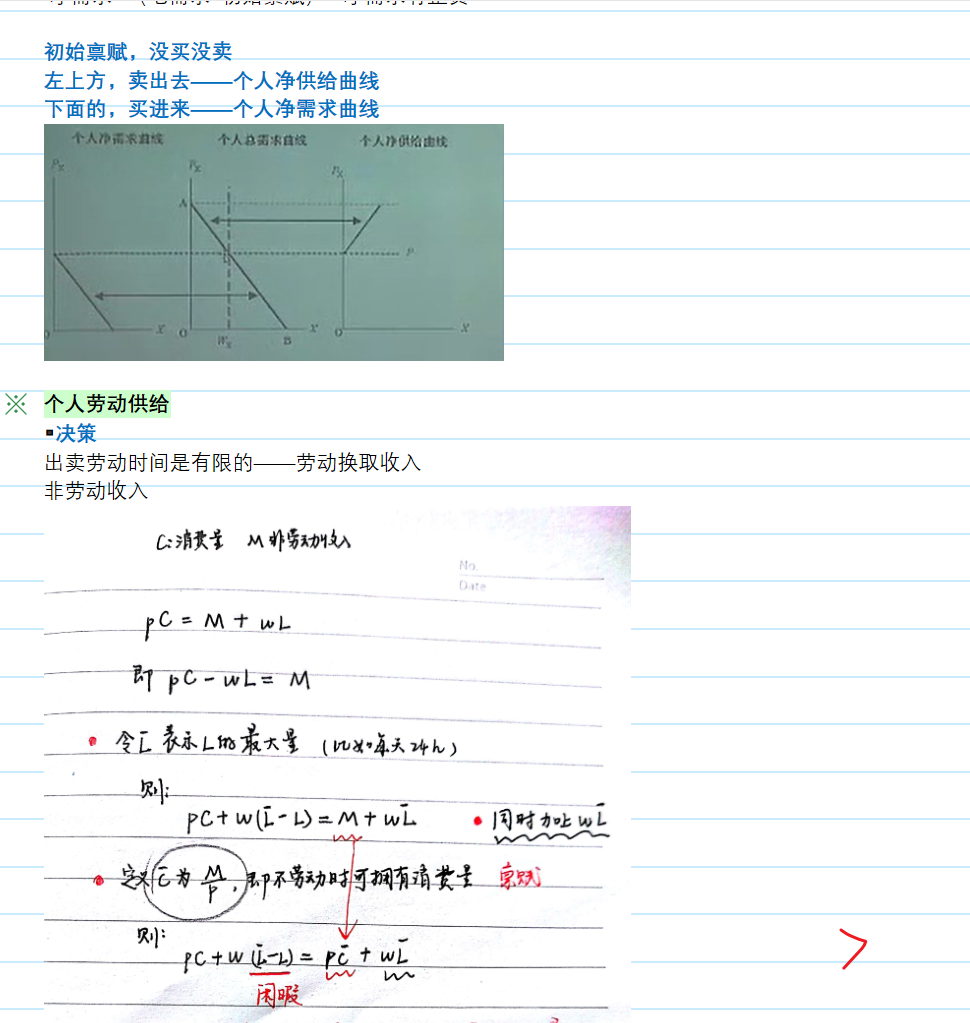 初始禀赋，没买没卖
左上方，卖出去——个人净供给曲线
下面的，买进来——个人净需求曲线
个人净需求曲线 个人总需求曲线 个人净供给曲线
Px Px Px
A
P
O X O Wx B X O X
※ 个人劳动供给
▪决策
出卖劳动时间是有限的——劳动换取收入
非劳动收入
C:消费量 M非劳动收入
No.
Date
pC = M + wL
即 pC - wL = M
• 令L̄表示L的最大量 (比如每天24h)
则:
pC + w(L̄-L) = M + wL̄ • 同时加上wL̄
• 定义C̄为M/P, 即不劳动时可拥有消费量 禀赋
则:
pC + w(L̄-L) = pC̄ + wL̄
闲暇